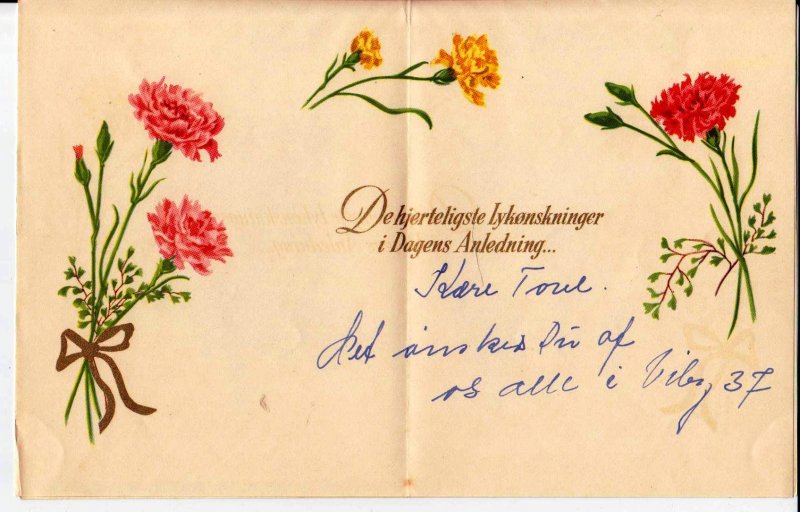 De hjerteligste lykønskninger
i Dagens Anledning...
Kære Tove.
Det ønskes Du af
os alle i Viby 37